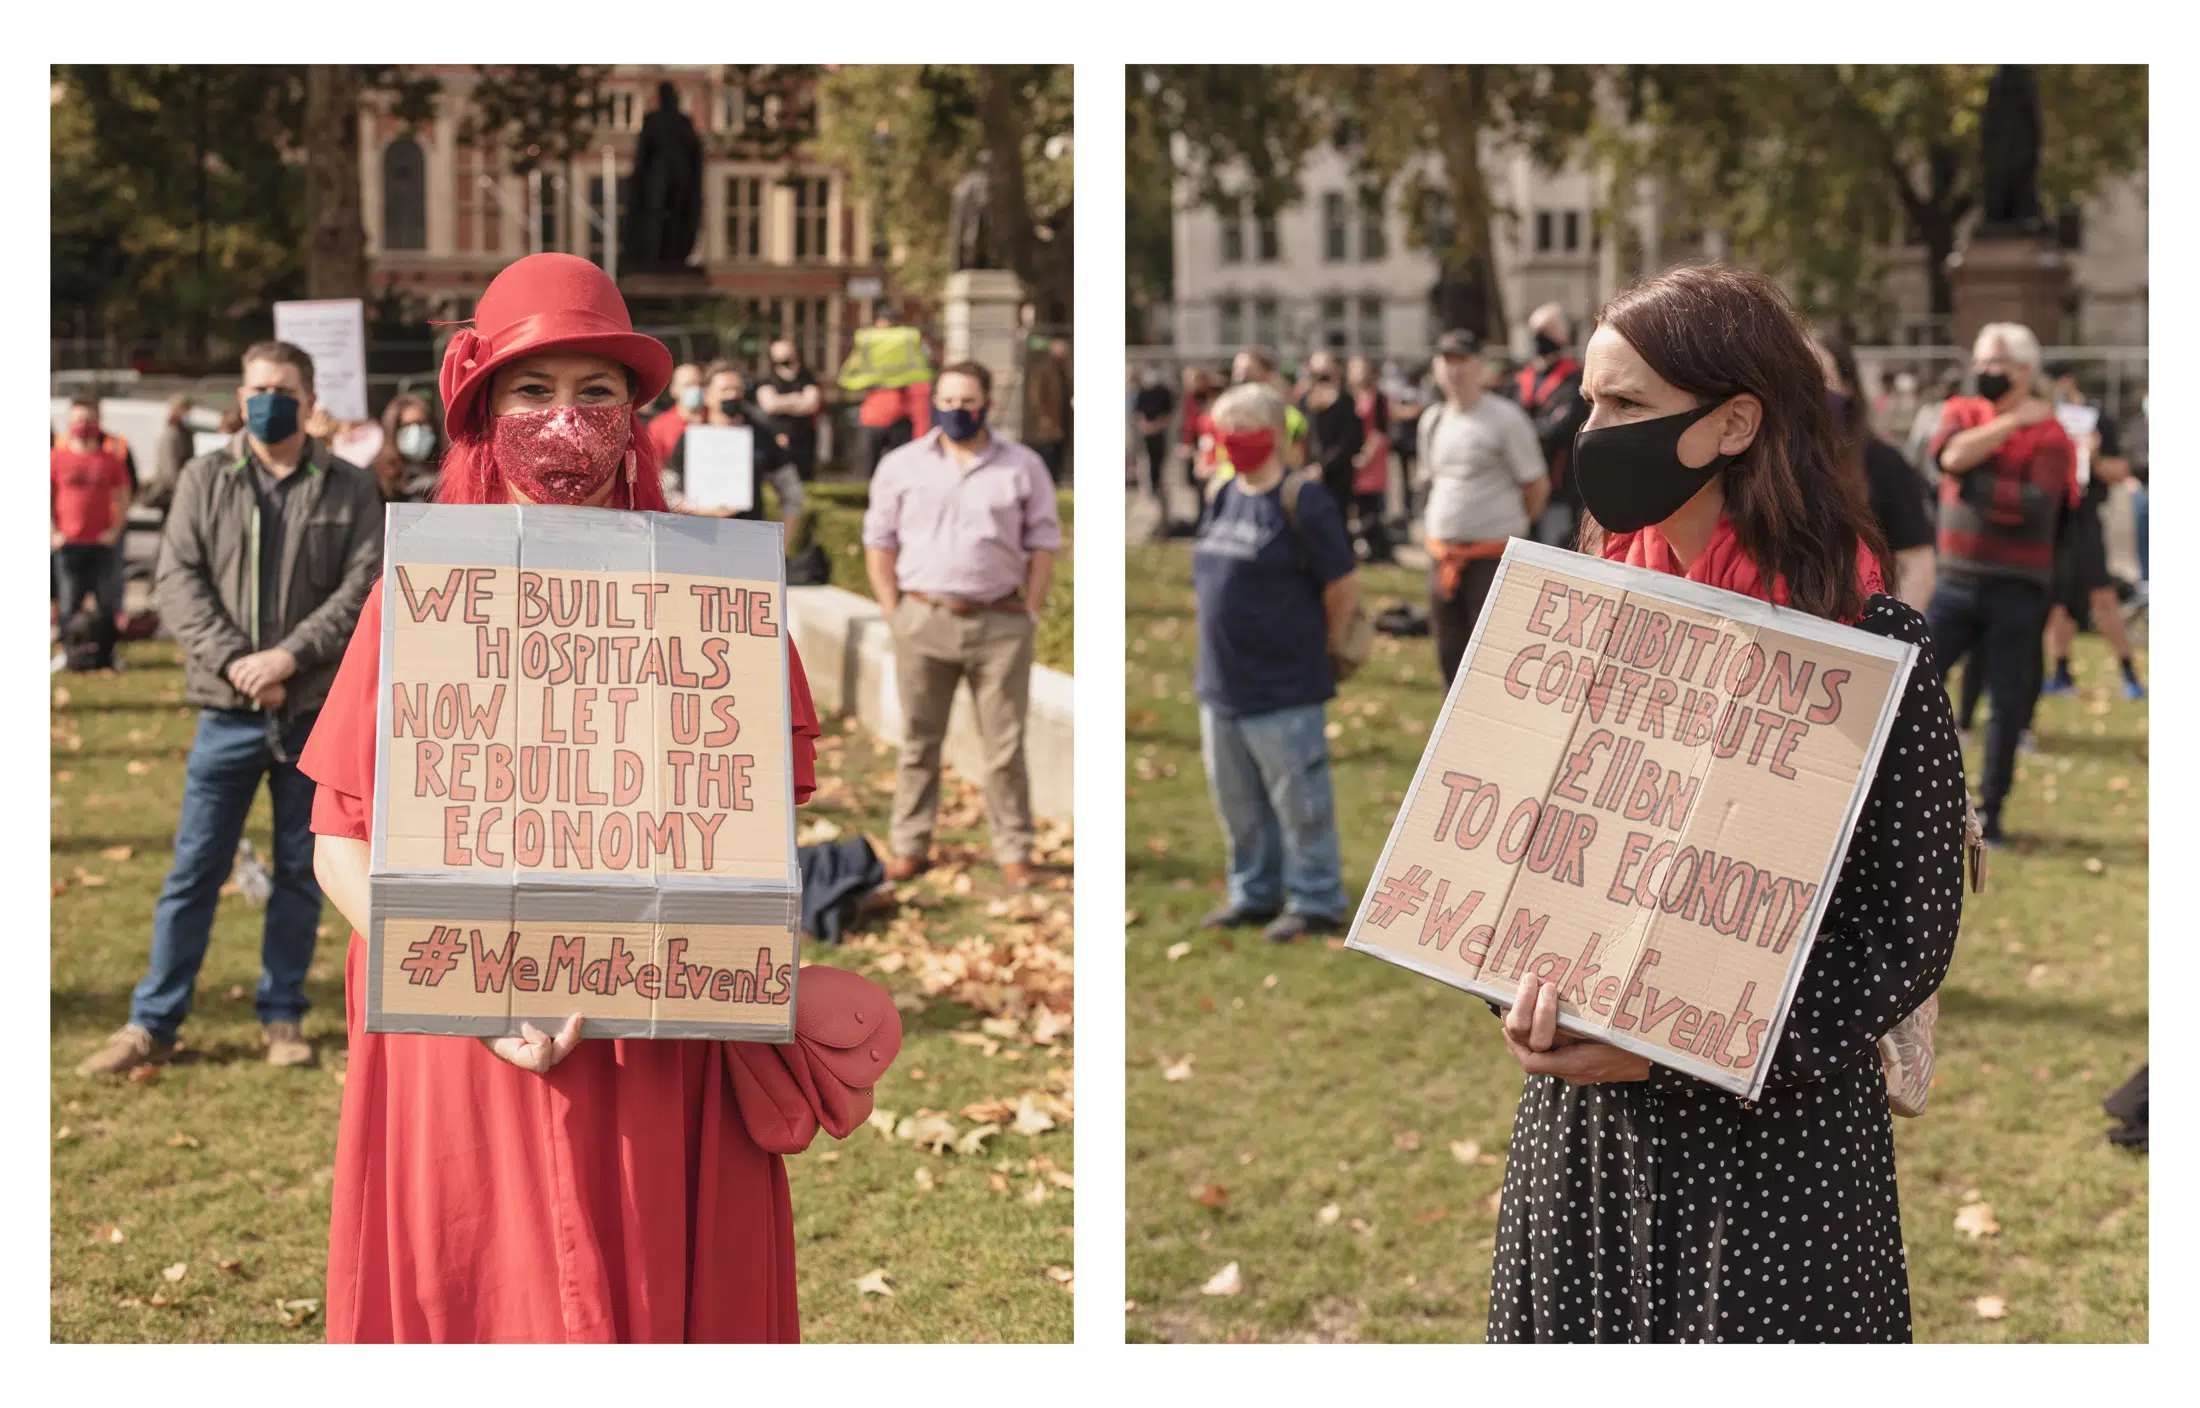 WE BUILT THE
HOSPITALS
NOW LET US
REBUILD THE
ECONOMY
#WeMakeEvents
EXHIBITIONS
CONTRIBUTE
£11BN
TO OUR ECONOMY
#WeMakeEvents